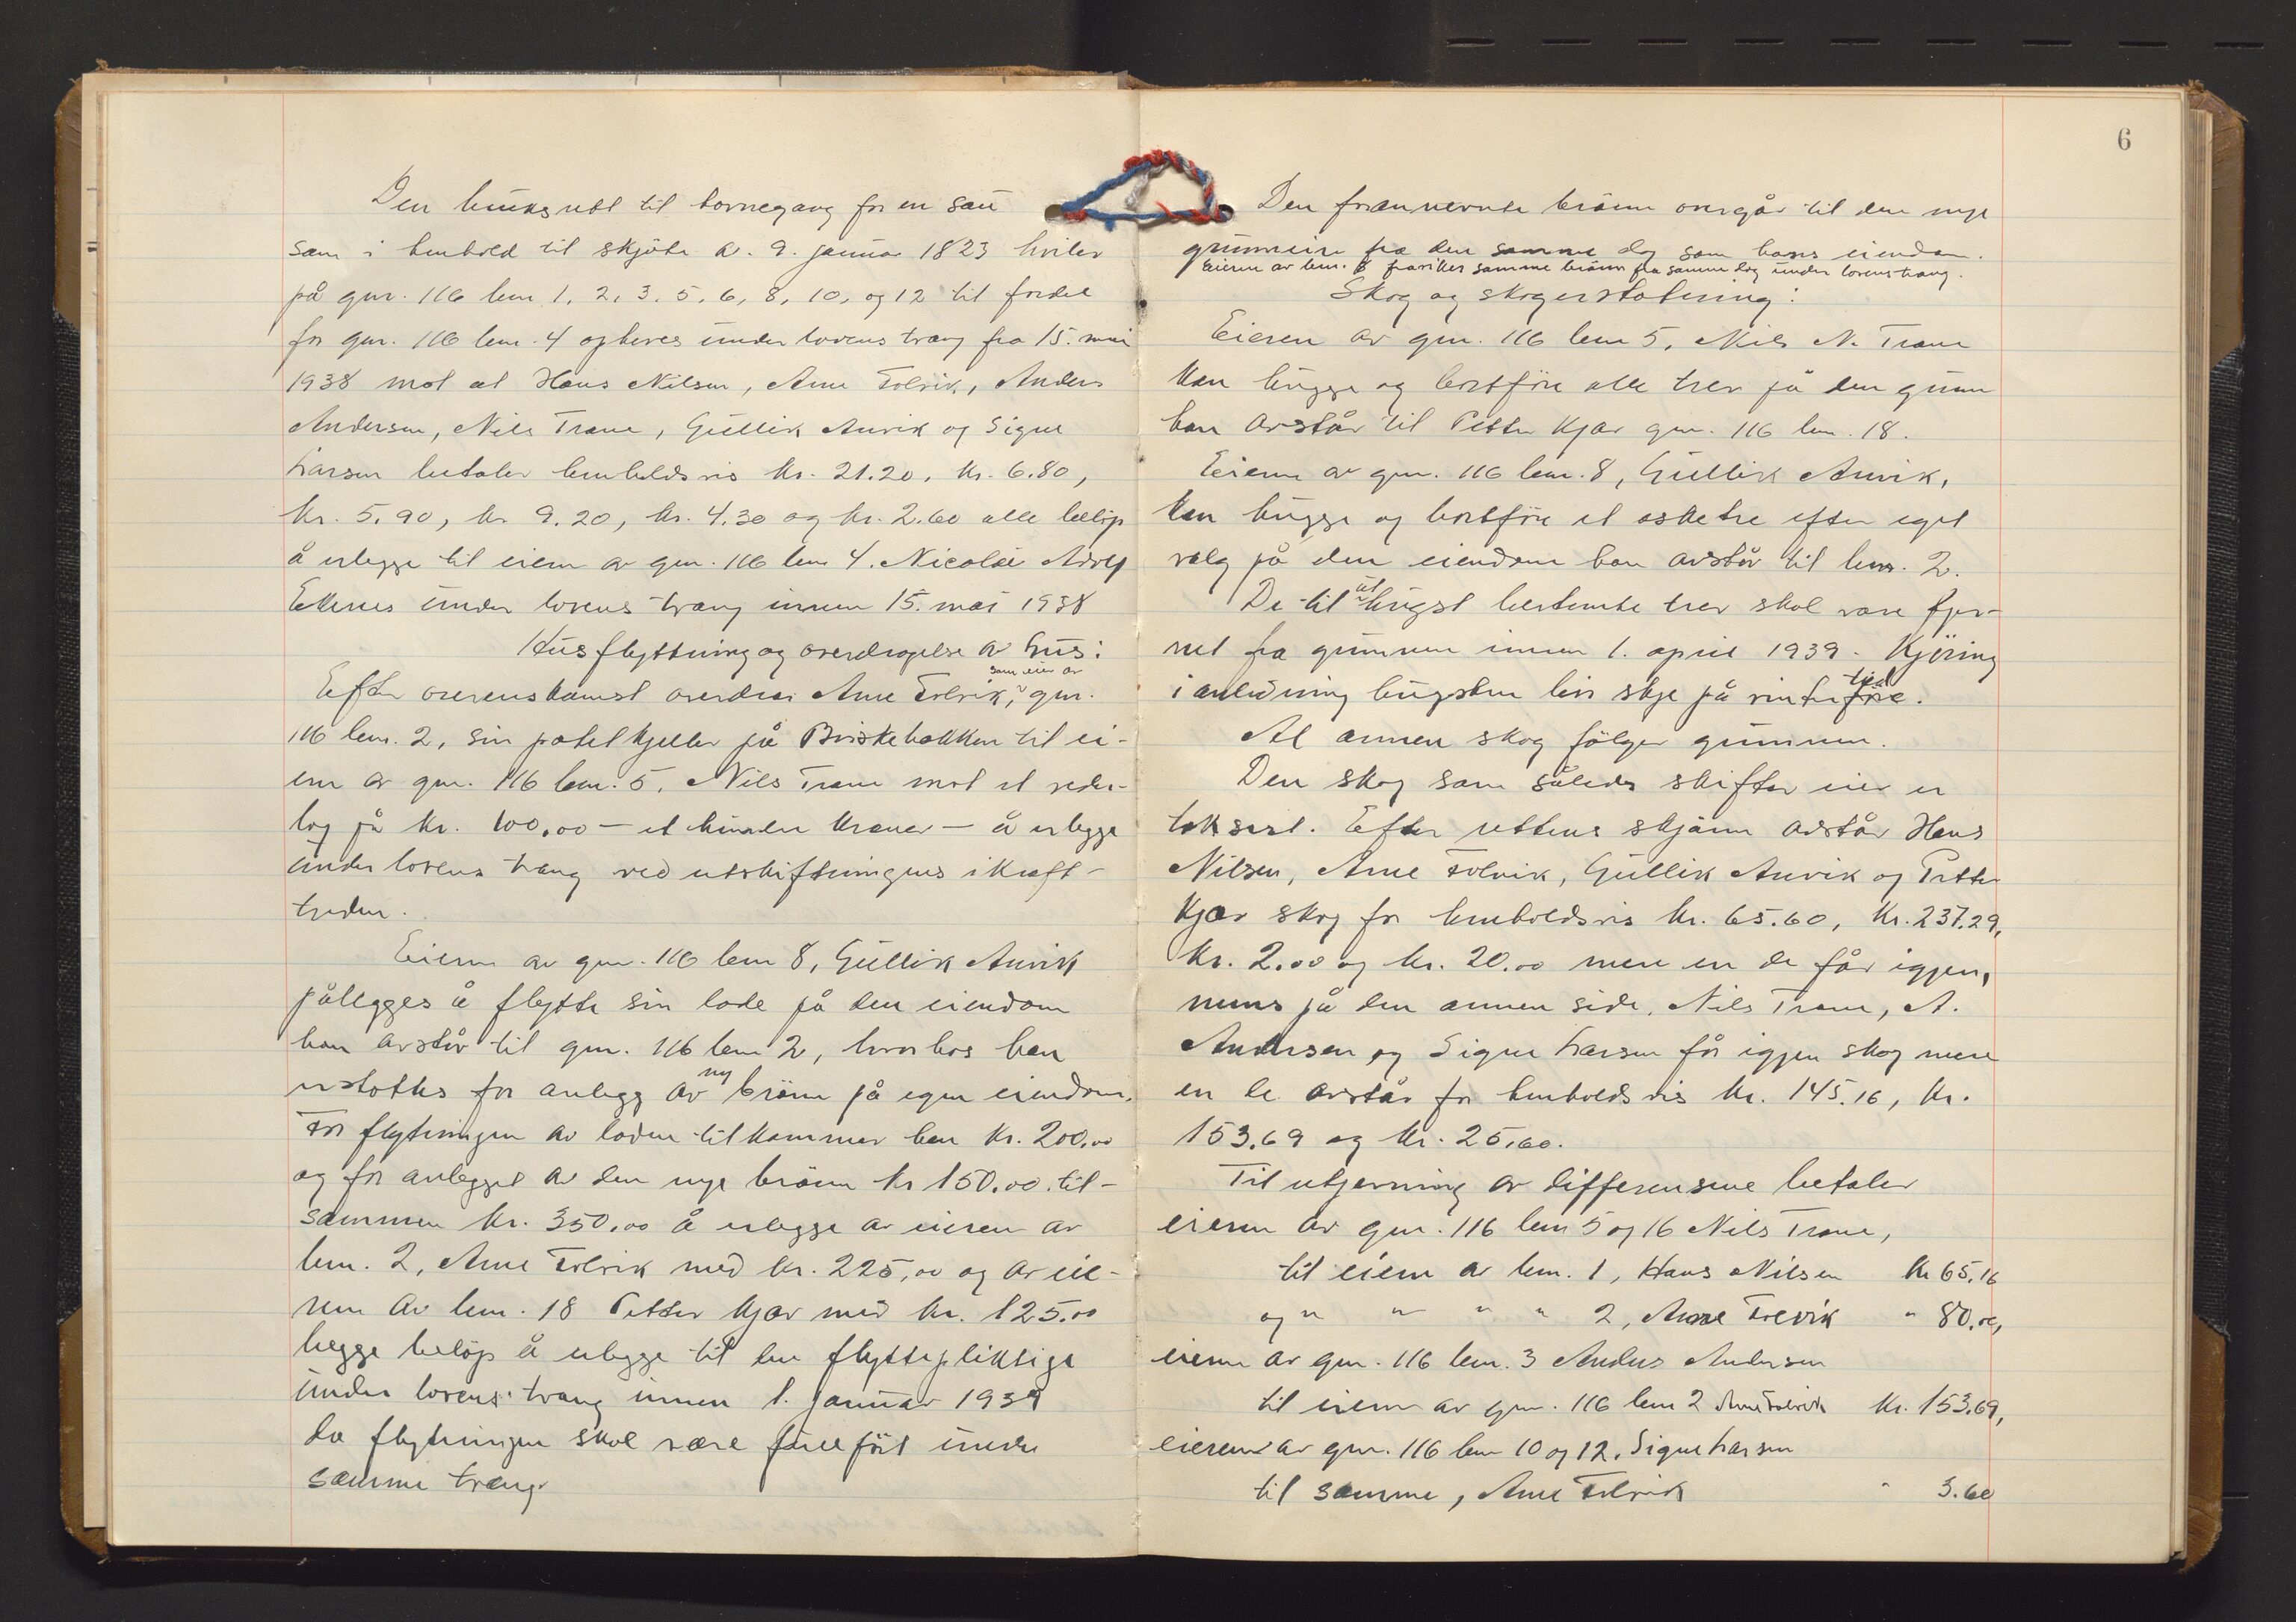 Den bruksrett til havnegang for en sau
som i henhold til skjöte av 9. januar 1823 hviler
på gnr. 116 bnr 1, 2, 3, 5, 6, 8, 10, og 12 til fordel
for gnr. 116 bnr. 4 opheves under lovens tvang fra 15. mai
1938 mot at Hans Nilsen, Arne Folvik, Anders
Andersen, Nils Trane, Gullik Anvik og Signe
Larsen betaler henholdsvis kr. 21.20, kr. 6.80,
kr. 5.90, kr 9.20, kr. 4.30 og kr. 2.60 alle belöp
å erlegge til eieren av gnr. 116 bnr 4. Nicolai Adolf
Ekenes under lovens tvang innen 15. mai 1938
Husflyttning og overdragelse av hus:
Efter overenskomst overdrar Arne Folvik, som eier av gnr.
116 bnr. 2, sin potetkjeller på Briskebakken til ei-
eren av gnr. 116 bnr. 5, Nils Trane mot et veder-
lag på kr. 100,00 – et hundre kroner – å erlegge
under lovens tvang ved utskiftningens ikraft-
treden.
Eieren av gnr. 116 bnr 8, Gullik Anvik
pålegges å flytte sin lade på den eiendom
han avstår til gnr. 116 bnr 2, hvorhos han
erstattes for anlegg av ny brönn på egen eiendom.
For flytningen av laden tilkommer han kr. 200.00
og for anlegget av den nye brönn kr 150.00 til-
sammen kr. 350,00 å erlegge av eieren av
bnr. 2, Arne Folvik med kr. 225,00 og av eie-
ren av bnr. 18 Petter Kjær med kr. 125.00
begge belöp å erlegge til den flyttepliktige
under lovens tvang innen 1. januar 1939
da flytningen skal være fullfört under
samme tvang.
6
Den forannevnte brönn overgår til den nye
grunneier fra den samme dag som hans eiendom.
Eieren av bnr. 8 fraviker samme brönn fra samme dag under lovens tvang.
Skog og skogerstatning:
Eieren av gnr. 116 bnr 5, Nils N. Trane
kan hugge og bortföre alle trær på den grunn
han avstår til Petter Kjær gnr. 116 bnr. 18.
Eieren av gnr. 116 bnr. 8, Gullik Anvik,
kan hugge og bortföre et asketre efter eget
valg på den eiendom han avstår til bnr. 2.
De til uthugst bestemte trær skal være fjer-
net fra grunnen innen 1. april 1939. Kjöring
i anledning hugsten bör skje på vinterföre. tid
Al annen skog fölger grunnen.
Den skog som således skifter eier er
taksert. Efter rettens skjönn avstår Hans
Nilsen, Arne Folvik, Gullik Anvik og Petter
Kjær skog for henholdsvis kr. 65.60, kr. 237.29,
kr. 2.00 og kr. 20.00 mere en de får igjen,
mens på den annen side, Nils Trane, A.
Andersen og Signe Larsen får igjen skog mere
en de avstår for henholdsvis kr. 145.16, kr.
153.69 og kr. 25.60.
Til utjevning av differensene betaler
eieren av gnr. 116 bnr 5 og 16 Nils Trane,
til eieren av bnr. 1, Hans Nilsen kr 65.16
og " " " " 2, Arne Folvik " 80.00,
eieren av gnr. 116 bnr. 3 Anders Andersen
til eieren av gnr. 116 bnr 2 Arne Folvik kr. 153.69,
eieren av gnr. 116 bnr 10 og 12, Signe Larsen
til samme, Arne Folvik " 3.60